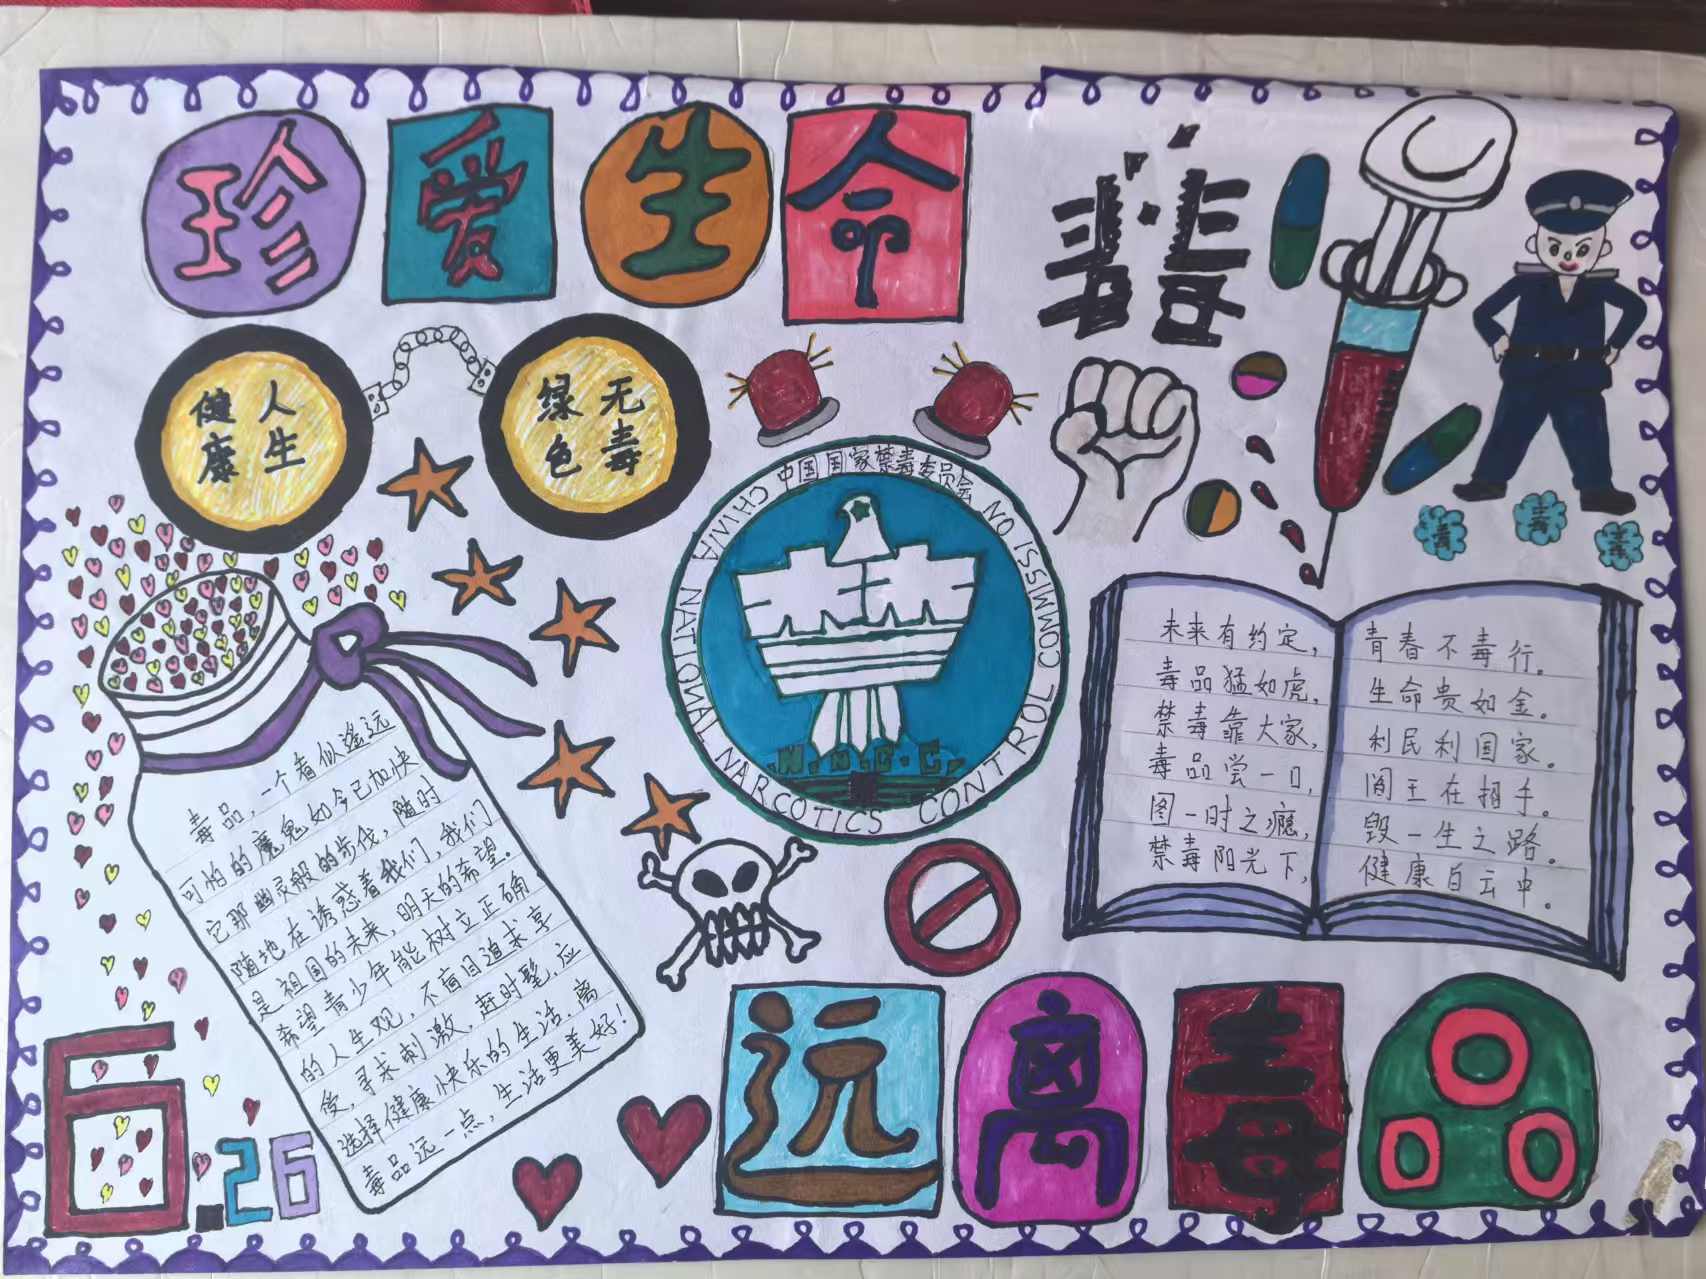 珍爱生命
毒
健康
人生
绿色
无毒
中国国家禁毒委员会
CHINA NATIONAL NARCOTICS CONTROL COMMISSION
N.N.C.C.
毒
毒
毒
未来有约定，青春不毒行。
毒品猛如虎，生命贵如金。
禁毒靠大家，利民利国家。
毒品尝一口，阎王在招手。
图一时之瘾，毁一生之路。
禁毒阳光下，健康白云中。
毒品，一个看似遥远
可怕的魔鬼如今已加快
它那幽灵般的步伐，随时
随地在诱惑着我们，我们
是祖国的未来，明天的希望。
希望青少年能树立正确
的人生观，不盲目追求享
受，寻求刺激，赶时髦，应
选择健康快乐的生活，离
毒品远一点，生活更美好！
6.26
远离毒品